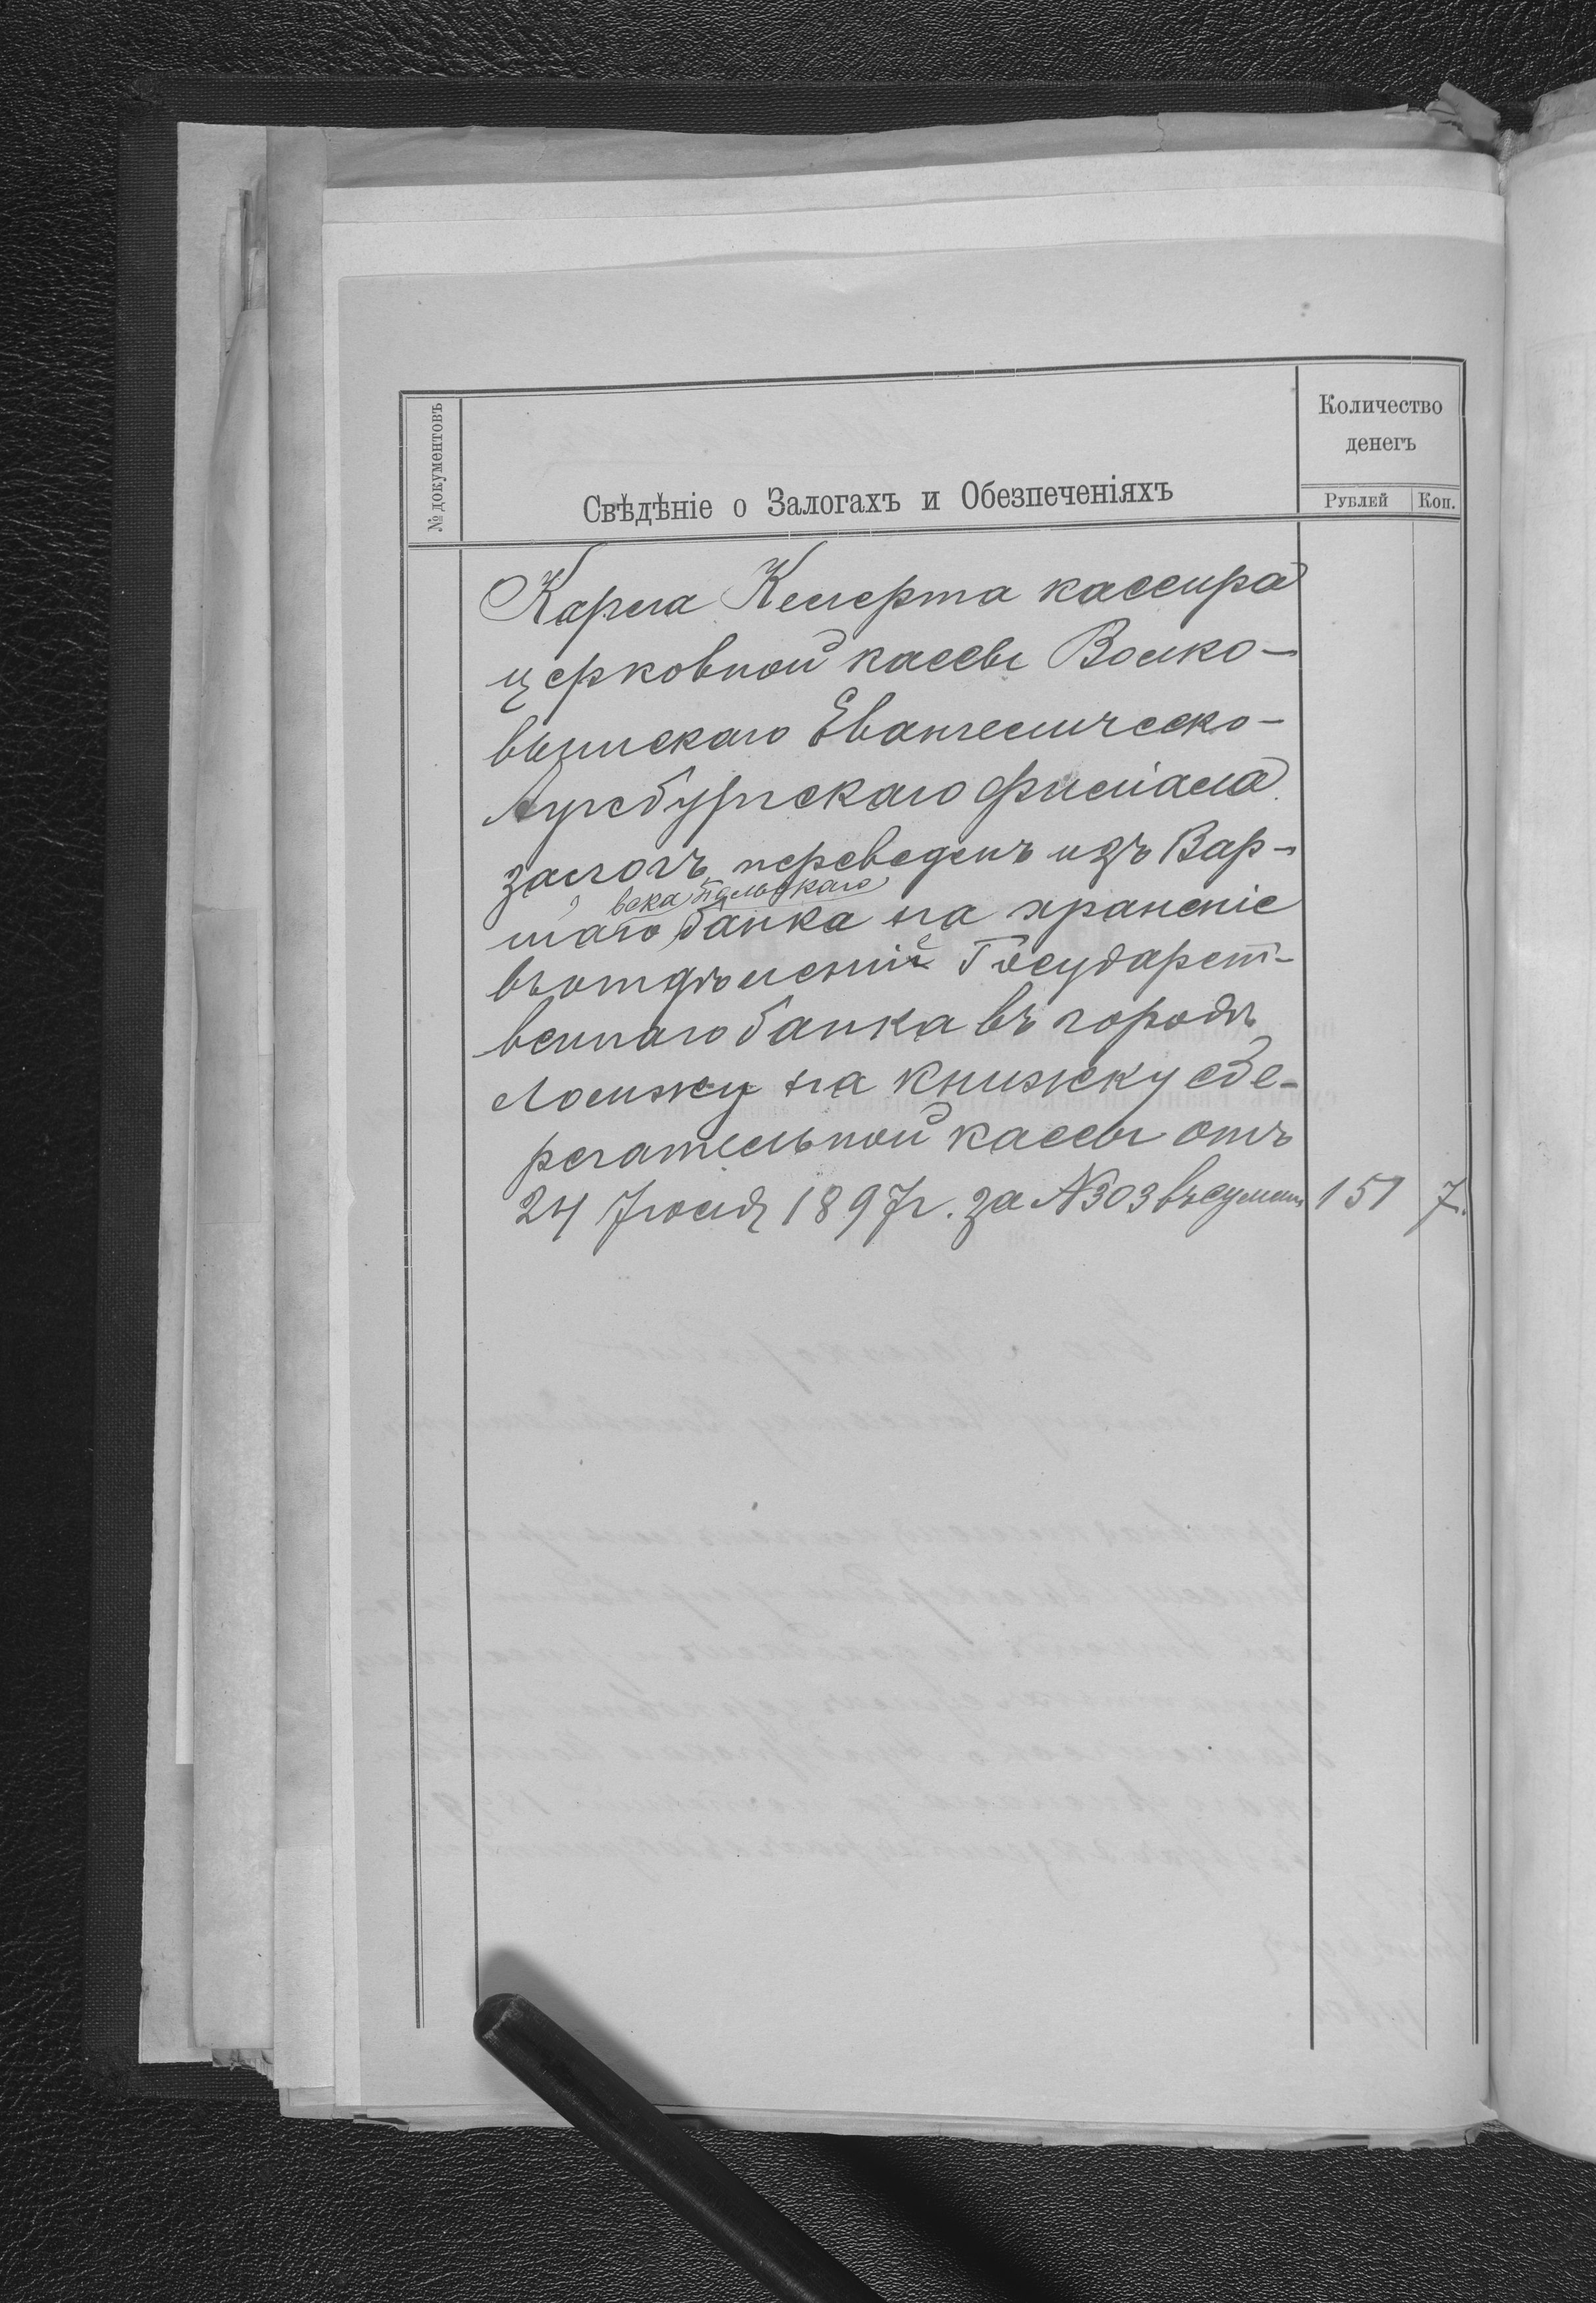 № документовъ
Свѣдѣніе о Залогахъ и Обезпеченіяхъ
Количество
денегъ
Рублей
Коп.
Карла Келерта кассира
церковной кассы Волко-
выпскаго Евангелическо-
Аугсбургскаго филіала
залогъ, переведенъ изъ Вар-
польскаго
шаго банка на храненіе
въ отдѣленіе Государст-
веннаго банка въ городѣ
Ломжу на книжку сбе-
регательной кассы отъ
24 Іюля 1897 г. за № 303 въ суммѣ 151 7.